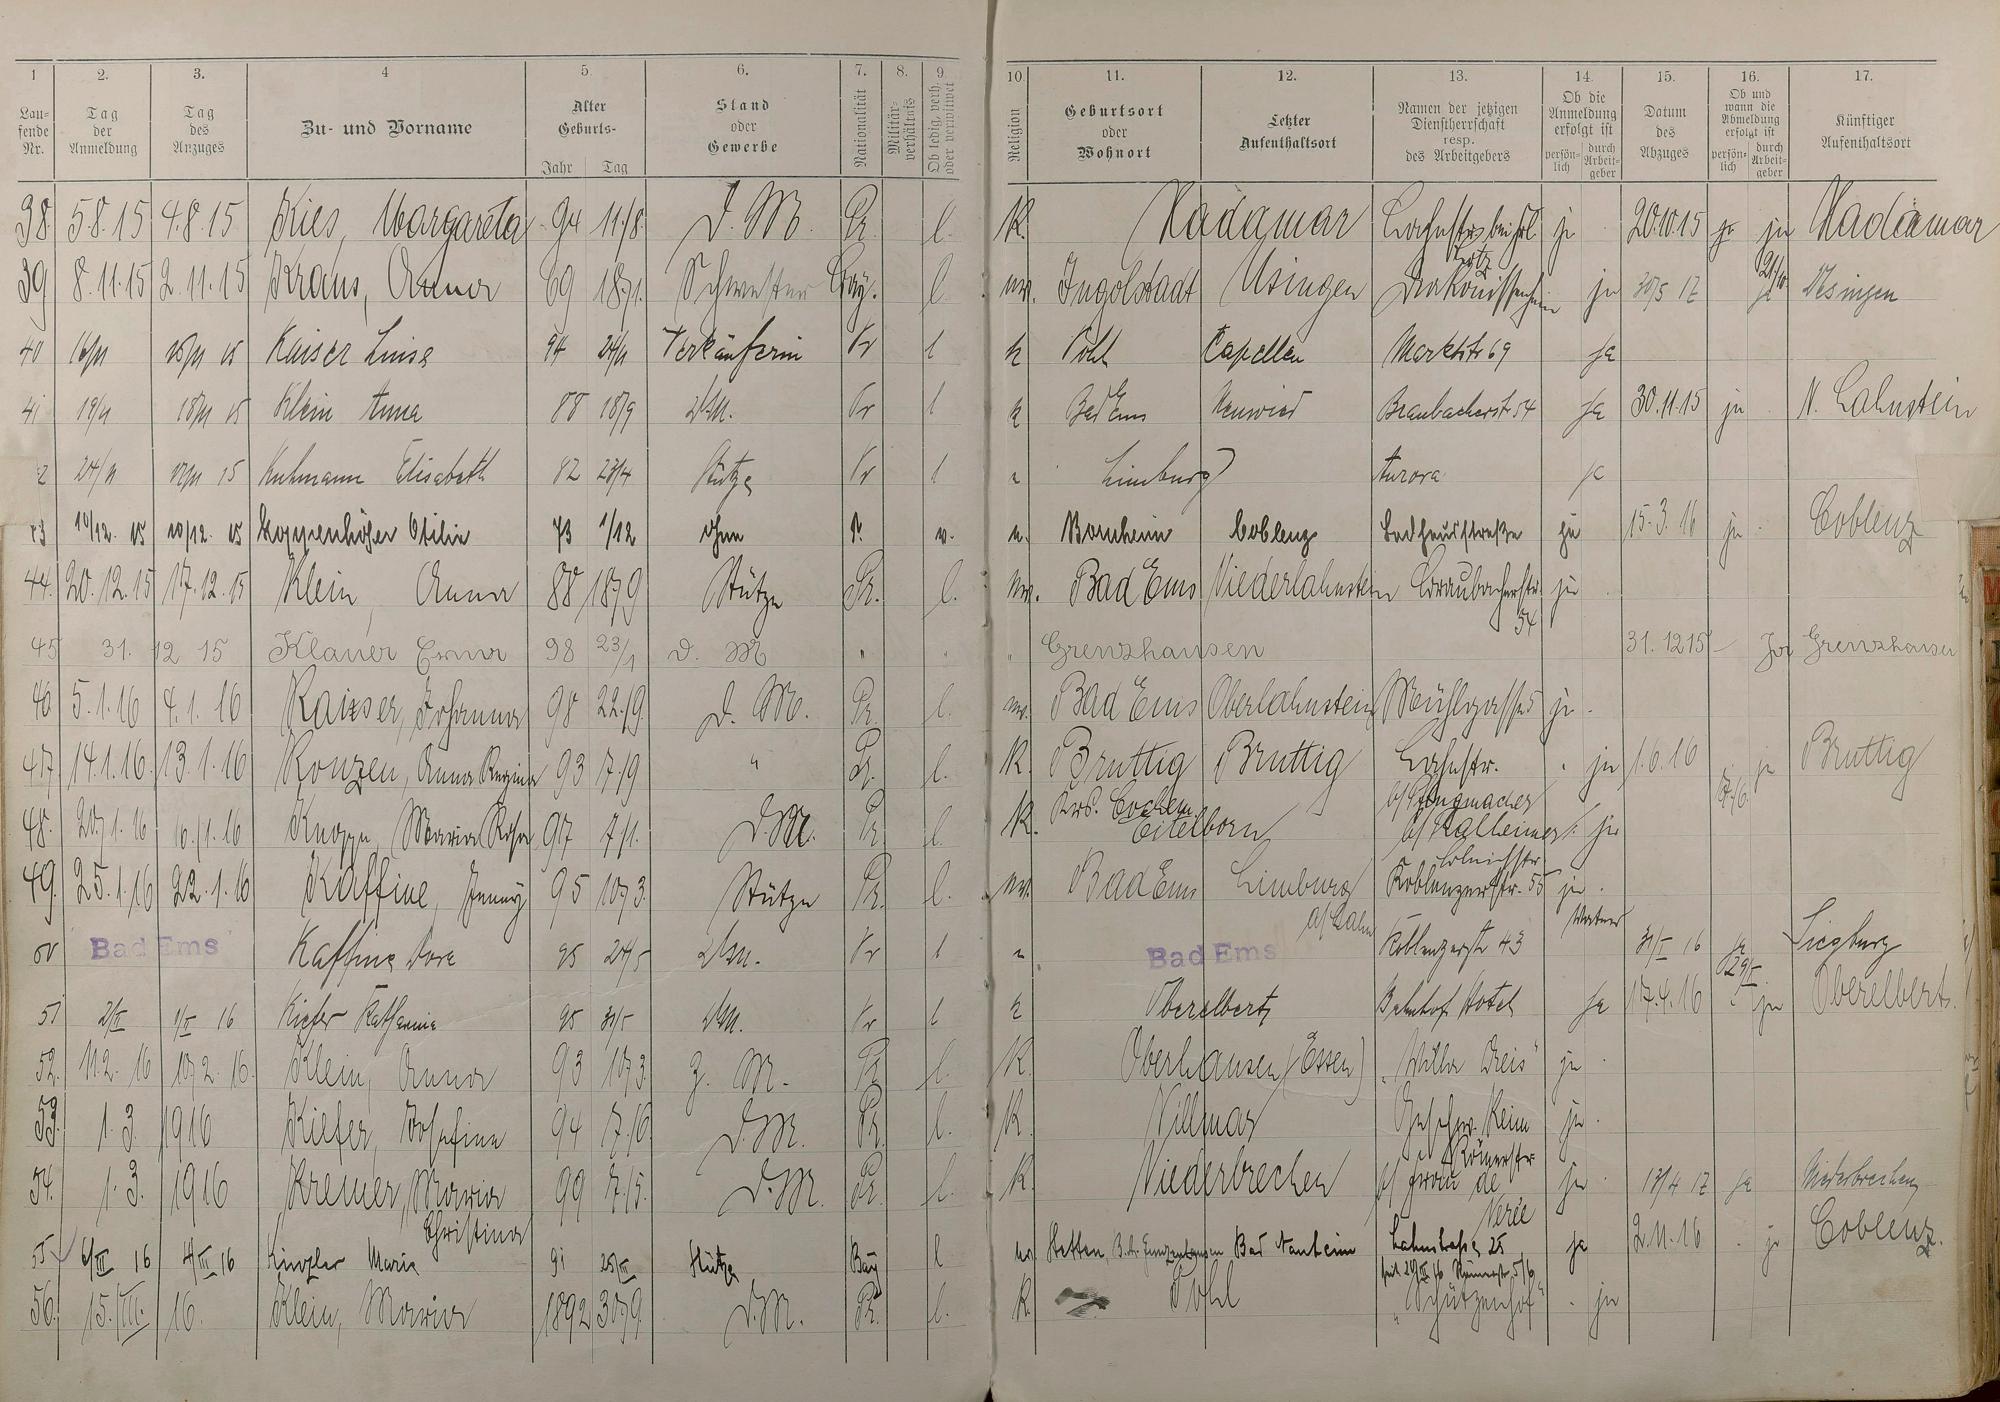 1 2. 3. 4 5. 6. 7. 8. 9. 10. 11. 12. 13. 14. 15. 16. 17.
Laufende Nr. Tag der Anmeldung Tag des Anzuges Zu- und Vorname Alter Geburts- Jahr Tag Stand oder Gewerbe Nationalität Militär-verhältnis Ob ledig, verh. oder verwitwet Religion Geburtsort oder Wohnort Letzter Aufenthaltsort Namen der jetzigen Dienstherrschaft resp. des Arbeitgebers Ob die Anmeldung erfolgt ist persön-lich durch Arbeit-geber Datum des Abzuges Ob und wann die Abmeldung erfolgt ist persön-lich durch Arbeit-geber Künftiger Aufenthaltsort
38. 5.8.15 4.8.15 Kies, Margareta 94 11./8. D. M. Pr. l. K. Hadamar ja 20.10.15 ja Hadamar
39 8.11.15 2.11.15 Kraus, Anna 69 18/1. Schwester Bay. l. ev. Ingolstadt Usingen Diakonissenheim ja 30/5 17 ja Usingen
40 16/11 15/11 15 Kaiser Luise 94 24/11 Verkäuferin Pr l k Pohl Capellen Marktstr 69 ja
41 19/11 18/11 15 Klein Anna 88 18/9 D.M. Pr l Bad Ems Neuwied Braubacherstr 54 ja 30.11.15 ja N. Lahnstein
24/11 15 Kuhmann Elisabeth 82 23/4 Stütze Pr l Limburg Aurora ja
43 10/12. 15 10/12. 15 Koppenhöfer Otilie 73 1/12 ohne P. w. Bornheim Coblenz Badhausstraße ja 15.3.16 ja Coblenz
44. 20.12.15 17.12.15 Klein, Anna 88 18/9 Stütze Pr. l. ev. Bad Ems Niederlahnstein Braubacherstr. 54 ja
45 31. 12 15 Klauer Erna 98 23/1 D. M " " " Grenzhausen 31.1215 — Ja Grenzhausen
46 5.1.16 4.1.16 Kaiser, Johanna 98 22./9. D. M. Pr. l. ev. Bad Ems Oberlahnstein Mühlgasse 5 ja
47. 14.1.16. 13.1.16 Konzen, Anna Regina 93 7./9 " Pr. l. K. Bruttig Bruttig Lahnstr. ja 1.6.16 ja Bruttig
Krs. Cochem
48. 20/1.16 16./1.16 Knopp, Maria Rosa 97 7/1. D.M. Pr. l. K. Eitelborn b/ Kalheimer ja
49. 25.1.16 22.1.16 Kaffine, Jenny 95 10/3. Stütze Pr. l. ev. Bad Ems Limburg a/Lahn Koblenzerstr. 55 ja
50 Bad Ems Kaffine Dora 95 24/5 D.M. Pr l Bad Ems Koblenzerstr 43 31/I 16 ja Siegburg
51 2/II 1/II 16 Kiefer Katharina 95 31/5 D.M. Pr l k Oberelbert Bahnhof Hotel ja 17.4.16 ja Oberelbert.
52. 11.2.16 10/2.16. Klein, Anna 93 10/3. Z. M. Pr l. K. Oberhausen (Essen) „Villa Dreis" ja
53. 1.3. 1916 Kiefer, Josefine 94 7./6. D.M. Pr. l. K. Villmar Geschw. Keim ja
54. 1.3. 1916 Kremer, Maria Christina 99 7./5. D.M. Pr. l. K. Niederbrechen ja 13/4 17 ja Niederbrechen
55 6/III 16 4/III 16 Kinzler Marie 91 25/III Stütze Bay l ev Stetten, Bad Nauheim Lahnstraße 25 ja 2.11.16 ja Coblenz.
56. 15./III. 16. Klein, Maria 1892 30/9. D.M. Pr. l. K. Pohl „Schützenhof" ja